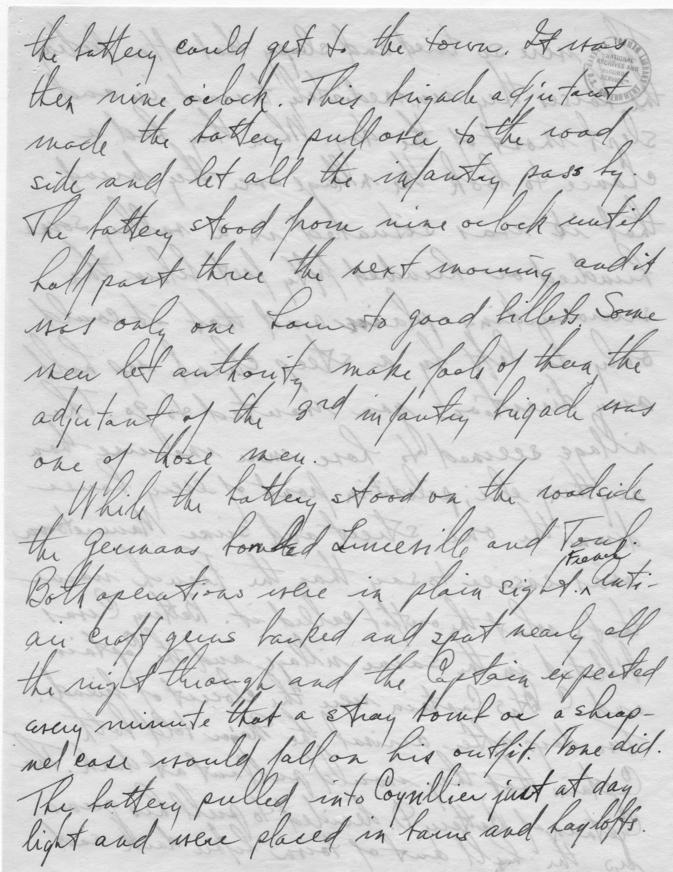 the battery could get to the town. It was
then nine o'clock. This brigade adjutant
made the battery pull over to the road
side and let all the infantry pass by.
The battery stood from nine oclock until
half past three the next morning and it
was only one hour to good billets. Some
men let authority make fools of them, the
adjutant of the 3rd infantry brigade was
one of those men.
While the battery stood on the roadside
the Germans bombed Luneville and Toul.
Both operations were in plain sight. ^ French Anti-
air craft guns barked and spat nearly all
the night through and the Captain expected
every minute that a stray bomb or a shrap-
nel case would fall on his outfit. None did.
The battery pulled into Coyvillier just at day
light and were placed in barns and haylofts.